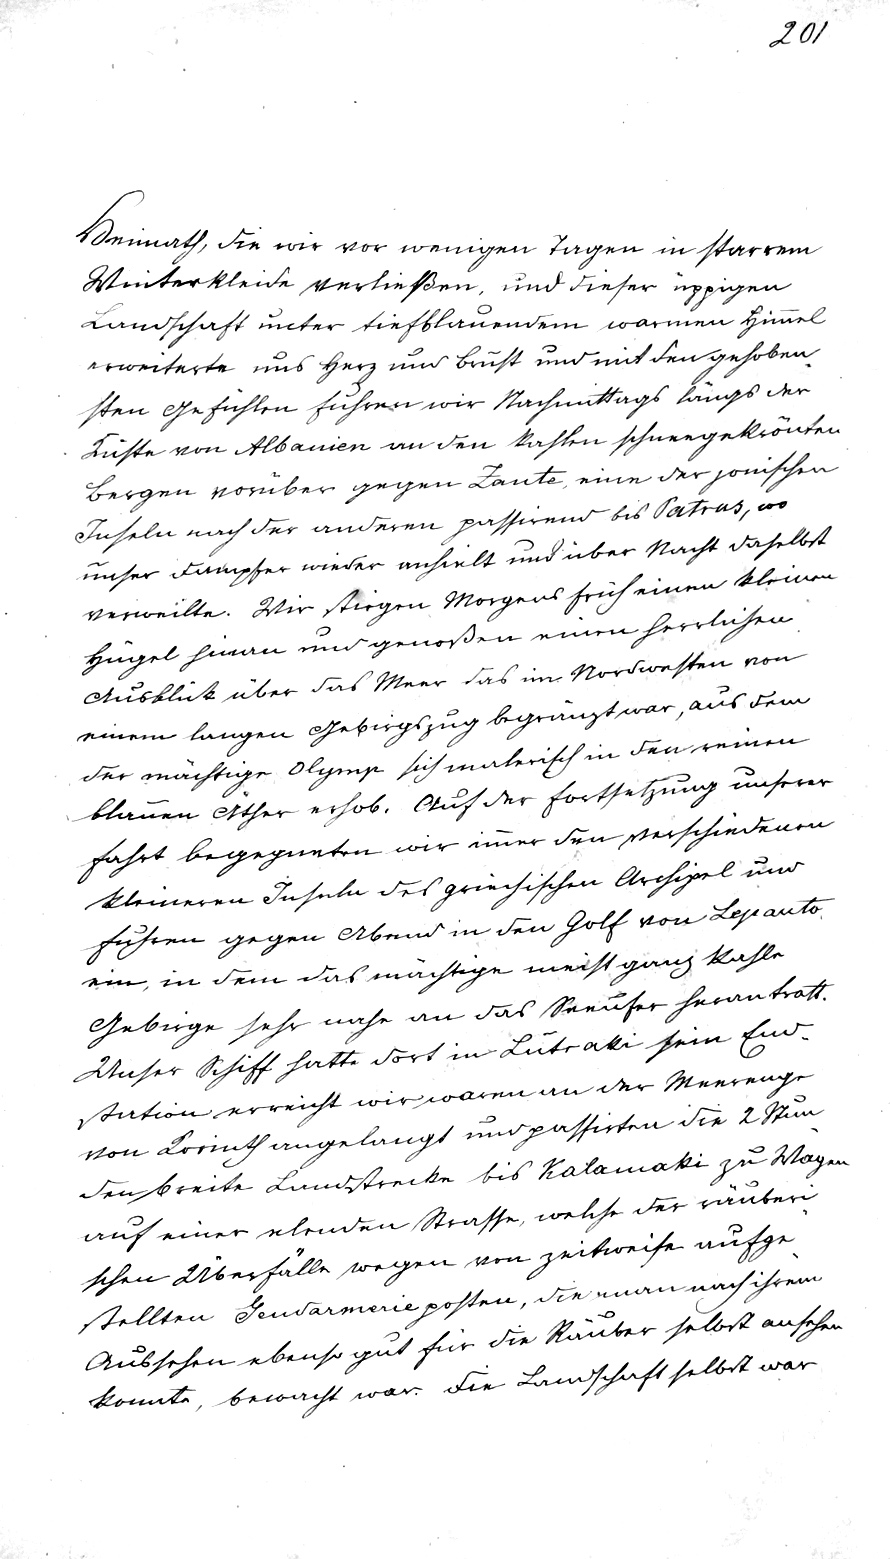 201
Heimath, die wir vor wenigen Tagen in starrem
Winterkleide verließen, und dieser üppigen
Landschaft unter tiefblauendem warmen Himmel
erweiterte uns Herz und Brust und mit den gehoben-
sten Gefühlen fuhren wir Nachmittags längs der
Küste von Albanien an den kahlen schneegekrönten
Bergen vorüber gegen Zante, eine der jonischen
Inseln nach der anderen passirend bis Patras, wo
unser Dampfer wieder anhielt und über Nacht daselbst
verweilte. Wir stiegen Morgens früh einen kleinen
Hügel hinan und genoßen einen herrlichen
Ausblick über das Meer das im Nordwesten von
einem langen Gebirgszug begränzt war, aus dem
der mächtige Olymp sich malerisch in den reinen
blauen Äther erhob. Auf der Fortsetzung unserer
Fahrt begegneten wir immer den verschiedenen
kleineren Inseln des griechischen Archipel und
fuhren gegen Abend in den Golf von Lepanto
ein, in dem das mächtige meist ganz kahle
Gebirge sehr nahe an das Seeufer herantratt.
Unser Schiff hatte dort in Lutraki sein End-
station erreicht wir waren an der Meerenge
von Korinth angelangt und passirten die 2 Stun-
den breite Landstrecke bis Kalamaki zu Wagen
auf einer elenden Strasse, welche der räuberi-
schen Überfälle wegen von zeitweise aufge-
stellten Gendarmerieposten, die man nach ihrem
Aussehen ebenso gut für die Räuber selbst ansehen
konnte, bewacht war. Die Landschaft selbst war